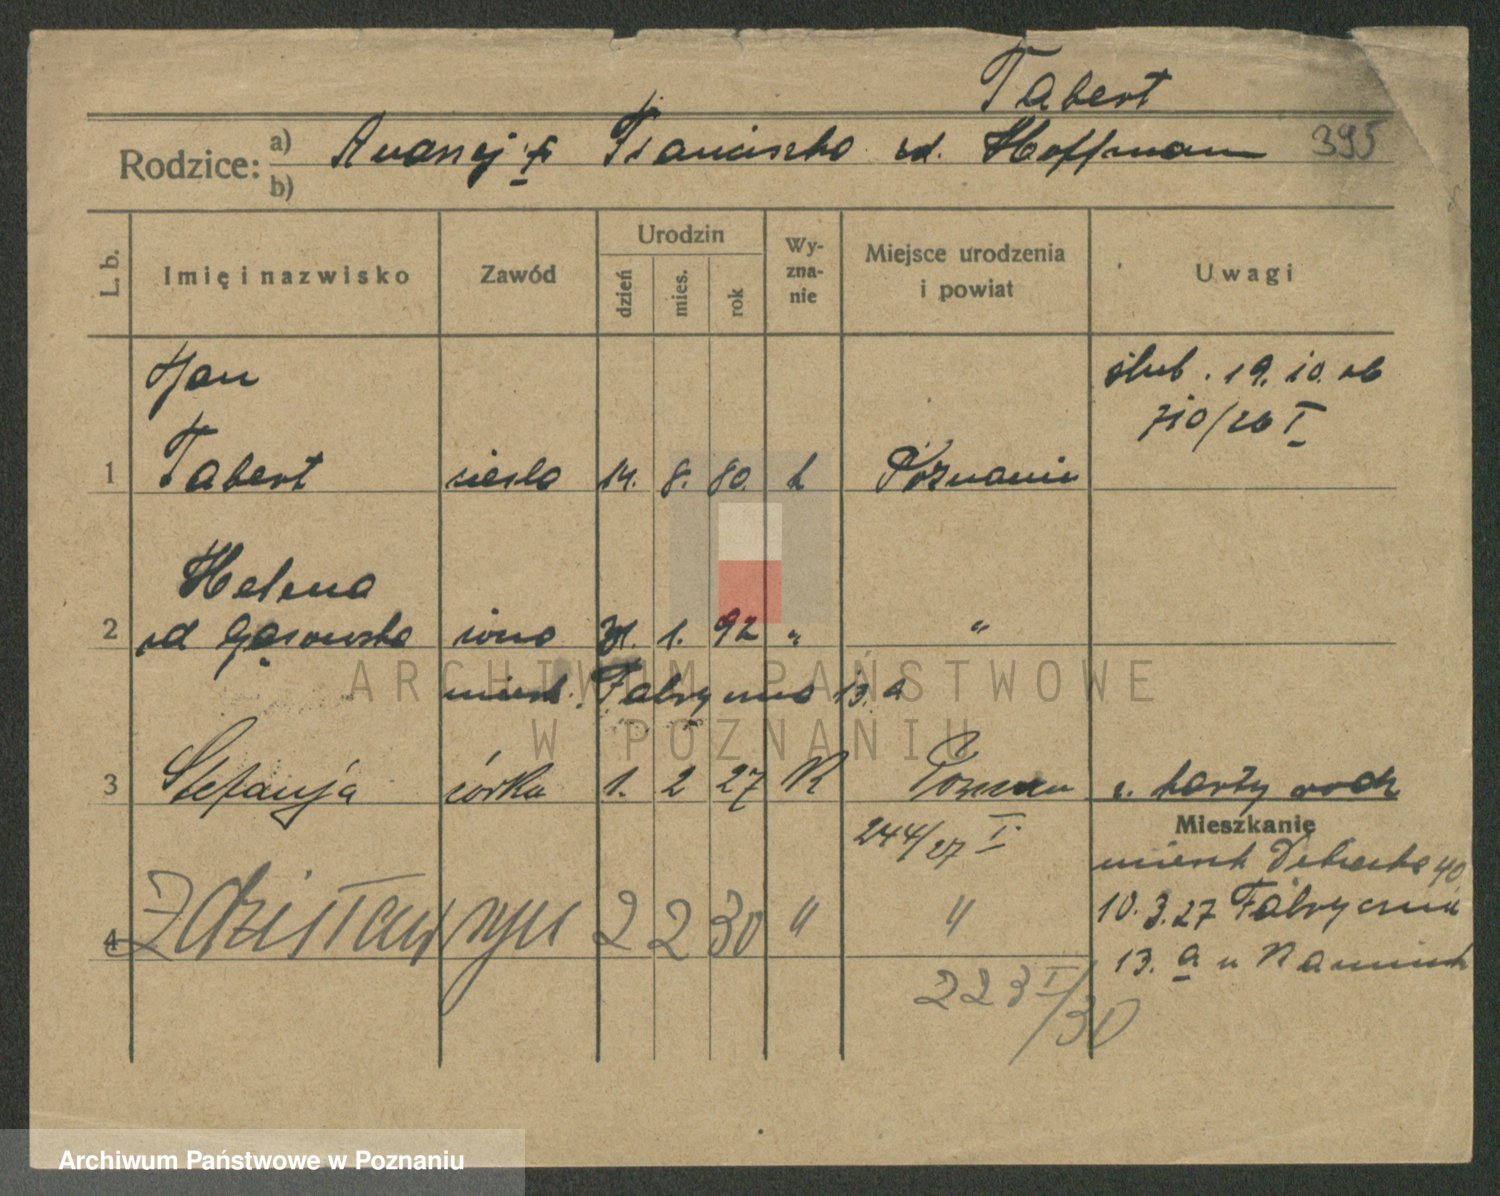 Tabert
Rodzice: a) b) Andrzej i Franciszka zd. Hoffmann 395
L. b. Imię i nazwisko Zawód Urodzin dzień mies. rok Wyznanie Miejsce urodzenia i powiat Uwagi
Jan ślub. 19. 10. 26
710/26 I
1 Tabert cieśla 14. 8. 80. k Poznaniu
Helena
2 zd Gąsowska żona 31. 1. 92 „ „
mieszk. Fabryczna 13. a
3 Stefanja córka 1. 2 27 R Poznań z. karty rodz
244/27 I
Mieszkanie
mieszk Dębiecka 40
4 Zdzisław syn 2 2 30 „ „ 10. 3. 27 Fabryczna
13. a u
223 I/30
ARCHIWUM PAŃSTWOWE
W POZNANIU
Archiwum Państwowe w Poznaniu